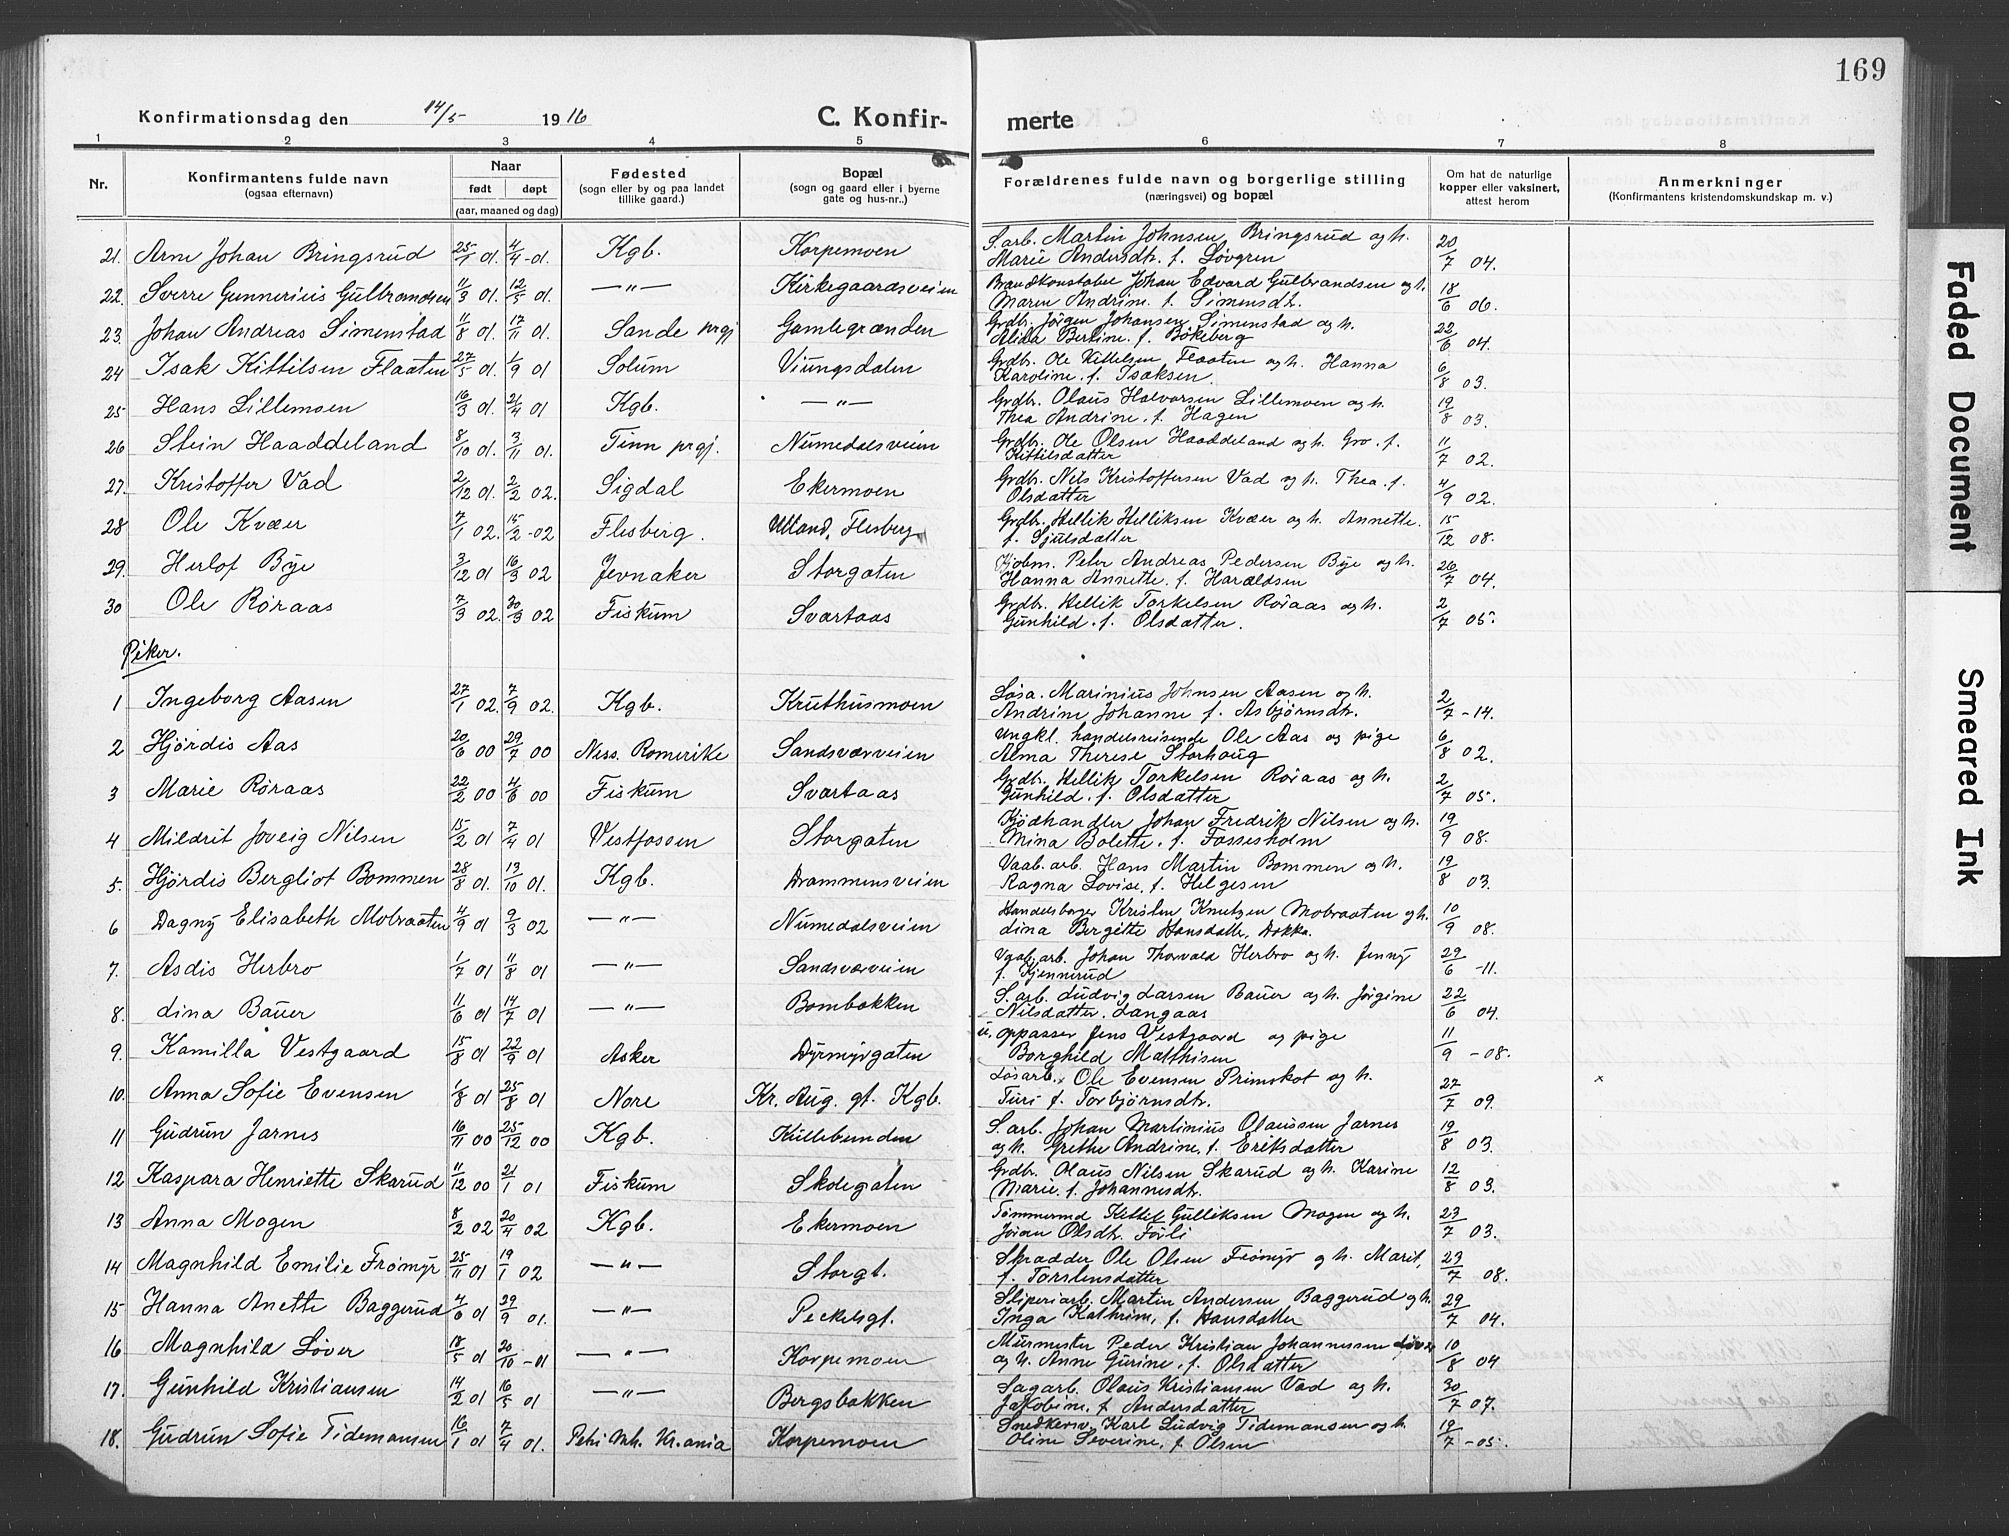 169
Konfirmationsdag den 14/5 1916 C. Konfir- merte
1 2 3 4 5 6 7 8
Nr. Konfirmantens fulde navn (ogsaa efternavn) Naar født døpt (aar, maaned og dag) Fødested (sogn eller by og paa landet tillike gaard.) Bopæl (sogn og gaard eller i byerne gate og hus-nr..) Forældrenes fulde navn og borgerlige stilling (næringsvei) og bopæl Om hat de naturlige kopper eller vaksinert, attest herom Anmerkninger (Konfirmantens kristendomskundskap m. v.)
21. Arne Johan Bringsrud 25/1 01. 4/4-01. Kgb. Korpemoen S.arb. Martin Johnsen Bringsrud og h. Marie Andersdtr. f. Løvgren 20/7 04.
22. Sverre Gunnerius Gulbrandsen 11/3 01. 12/5 01. —"— Kirkegaardsveien Brandkonstabel Johan Edvard Gulbrandsen og h. Maren Andrine. f. Simensdtr. 18/6 06.
23. Johan Andreas Simenstad 11/8 01. 17/11 01. Sande prgj Gamlegrænden Grdbr. Jørgen Johansen Simenstad og h. Alida Bertine. f. Bökeberg 22/6 04.
24 Isak Kittilsen Flaaten 27/5 01. 1/9 01 Solum Viungsdalen Grdbr. Ole Kittelsen Flaaten og h. Hanna Karoline. f. Isaksen. 6/8 03.
25 Hans Lillemoen 16/3 01. 21/4 01 Kgb. —"— Grdbr. Olaus Halvorsen Lillemoen og h. Thea Andrine. f. Hagen 19/8 03.
26 Stein Haaddeland 8/10 01. 3/11 01. Tinn prgj. Numedalsveien Grdbr. Ole Olsen Haaddeland og h. Gro. f. Kittilsdatter 11/7 02.
27. Kristoffer Vad 2/12 01. 2/2 02. Sigdal Ekermoen Grdbr. Nils Kristoffersen Vad og h. Thea. f. Olsdatter 4/9 02.
28 Ole Kvær 7/1 02. 15/2-02 Flesberg. Utland, Flesberg Grdbr. Hellik Helliksen Kvær og h. Annette. f. Sjulsdatter 15/12 08.
29. Herlof Bye 3/12 01 16/3 02 Jevnaker Storgaten Kjøbm. Peter Andreas Pedersen Bye og h. Hanna Annette. f. Haraldsen 26/7 04.
30 Ole Røraas 7/3 02. 30/3 02 Fiskum Svartaas Grdbr. Hellik Torkelsen Røraas og h. Gunhild. f. Olsdatter. 2/7 05.
Piker.
1 Ingeborg Aasen 27/1 02. 7/9 02. Kgb. Kruthusmoen Løsa. Marinius Johnsen Aasen og h. Andrine Johanne f. Asbjørnsdtr. 2/7-14.
2 Hjördis Aas 20/6 00 29/7 00 Ness. Romerike Sandsværveien Ungkl. handelsreisende Ole Aas og pige Alma Therese Storhaug 6/8 02.
3 Marie Røraas 22/2 00 4/6 00 Fiskum Svartaas Grdbr. Hellik Torkelsen Røraas og h. Gunhild. f. Olsdatter 2/7 05.
4 Mildrit Joveig Nilsen 15/2 01 7/4 01 Vestfossen Storgaten Kjödhandler Johan Fredrik Nilsen og h. Mina Bolette. f. Fossesholm 19/9 08.
5. Hjördis Bergliot Bommen 28/8 01. 13/10 01. Kgb. Drammensveien Vaab. arb. Hans Martin Bommen og h. Ragna Lovise. f. Helgesen 19/8 03.
6 Dagny Elisabeth Mobraaten 4/9 01 9/3 02 —"— Numedalsveien Handelsborger Kristen Knutzen Mobraaten og h. Lina Bergitte Hansdatte, Dokka. 10/9 08.
7. Asdis Herbro 1/7 01 11/8 01 —"— Sandsværveien Vaab.arb. Johan Thorvald Herbro og h. Jenny f. Kjennerud 29/6-11.
8. Lina Bauer 11/6 01 14/7 01 —"— Bombakken S.arb. Ludvig Larsen Bauer og h. Jørgine Nilsdatter. Langaas 22/6 04.
9. Kamilla Vestgaard 15/8 01 22/9 01 Asker Dyrmyrgaten u. oppasser Jens Vestgaard og pige Borghild Mathisen 11/9-08.
10. Anna Sofie Evensen 1/8 01 25/8 01 Nore Kr. Aug. gt. Kgb. Løsarb. x Ole Evensen Primskot og h. Turi f. Torbjørnsdtr. 27/7 09. x
11 Gudrun Jarnes 16/11 00 25/12 00 Kgb. Kullebunden S.arb. Johan Martinius Olaussen Jarnes og h. Grethe Andrine. f. Eriksdatter 19/8 03.
12 Kaspara Henriette Skarud 11/12 00 21/1 01 Fiskum Skolegaten Grdbr. Olaus Nilsen Skarud og h. Karine Marie. f. Johannesdtr. 12/8 03.
13 Anna Mogen 8/2 02 20/4 02 Kgb. Ekermoen Tømmermd Kittil Gulliksen Mogen og h. Jöran Olsdtr. Förli 23/7 03.
14 Magnhild Emilie Frømyr 25/11 01 19/1 02 —"— Storgt. Skradder Ole Olsen Frømyr og h. Marit, f. Torstensdatter 23/7 08.
15 Hanna Anette Baggerud 4/6 01 29/9 01. —"— Peckelsgt. Sliperiarb. Martin Andersen Baggerud og h. Inga Kathrine, f. Hansdatter 29/7 04.
16 Magnhild Løver 18/5 01 20/10-01 —"— Korpemoen Murmester Peder Kristian Johannessen Løver og h. Anne Gurine. f. Olsdatter 10/8 04
17. Gunhild Kristiansen 14/2 01 16/5 01 —"— Bergsbakken Sagarb. Olaus Kristiansen Vad og h. Jakobine. f. Andersdatter 30/7 07.
18. Gudrun Sofie Tidemansen 16/1 01 7/4 01. Petri mh. Kr.ania Korpemoen Snedkersv. Karl Ludvig Tidemansen og h. Oline Severine, f. Olsen 19/7-05.
Faded Document
Smeared Ink